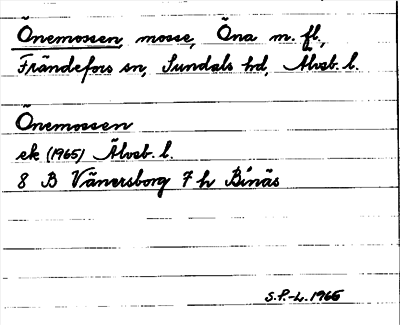 Önemossen, mosse, Öna m. fl.,
Frändefors sn, Sundals hd, Älvsb. l.
Önemossen
ek (1965) Älvsb. l.
8 B Vänersborg 7 h Binäs
S.P.-L. 1965